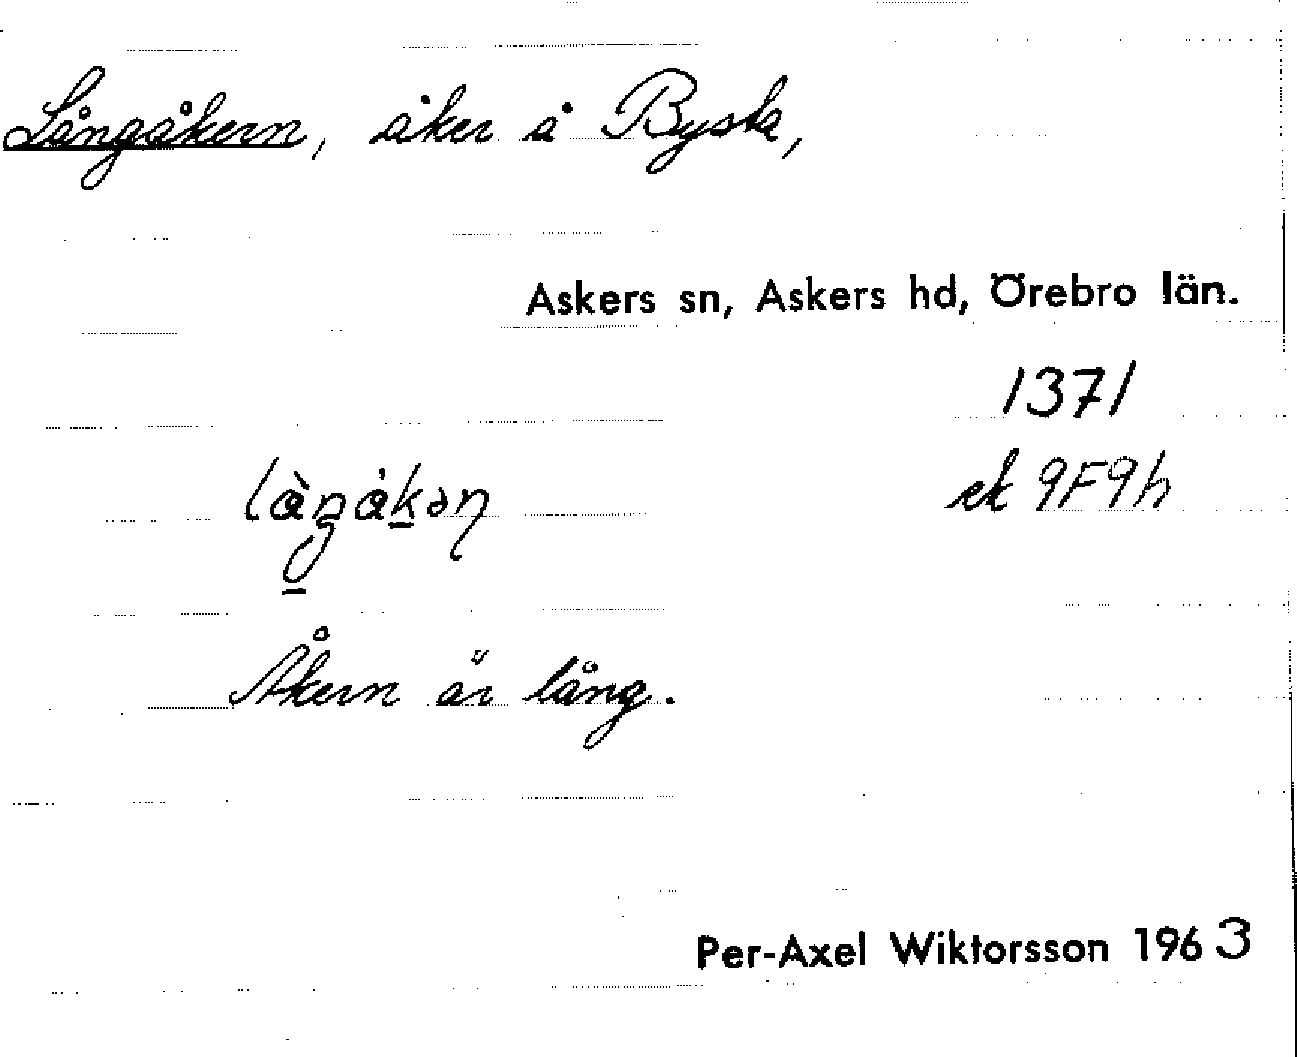 Långåkern, åker å Bysta,
Askers sn, Askers hd, Örebro län.
1371
ek 9F9h
Åkern är lång.
Per-Axel Wiktorsson 1963